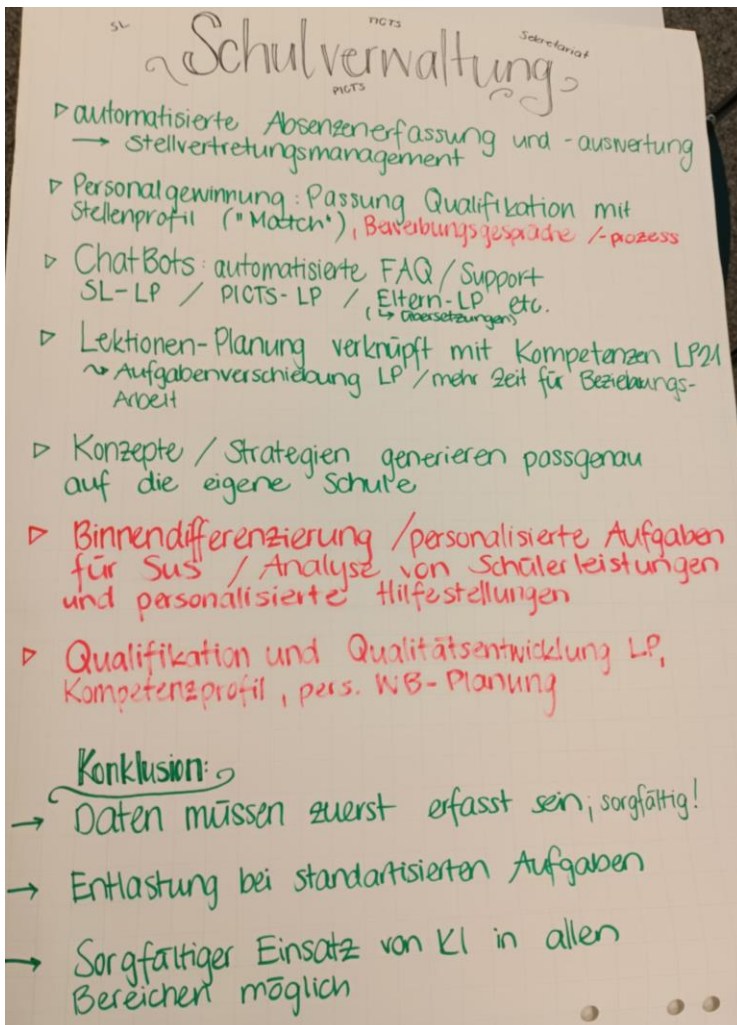 SL
TICTS
Sekretariat
Schulverwaltung
PICTS
▷ automatisierte Absenzenerfassung und -auswertung
→ Stellvertretungsmanagement
▷ Personalgewinnung: Passung Qualifikation mit
Stellenprofil ("Match"), Bewerbungsgespräche /-prozess
▷ ChatBots: automatisierte FAQ / Support
SL-LP / PICTS-LP / Eltern-LP etc.
(↳ Übersetzungen)
▷ Lektionen-Planung verknüpft mit Kompetenzen LP21
↝ Aufgabenverschiebung LP / mehr Zeit für Beziehungs-
Arbeit
▷ Konzepte / Strategien generieren passgenau
auf die eigene Schule
▷ Binnendifferenzierung / personalisierte Aufgaben
für SuS / Analyse von Schülerleistungen
und personalisierte Hilfestellungen
▷ Qualifikation und Qualitätsentwicklung LP,
Kompetenzprofil, pers. WB-Planung
Konklusion:
→ Daten müssen zuerst erfasst sein; sorgfältig!
→ Entlastung bei standartisierten Aufgaben
→ Sorgfältiger Einsatz von KI in allen
Bereichen möglich